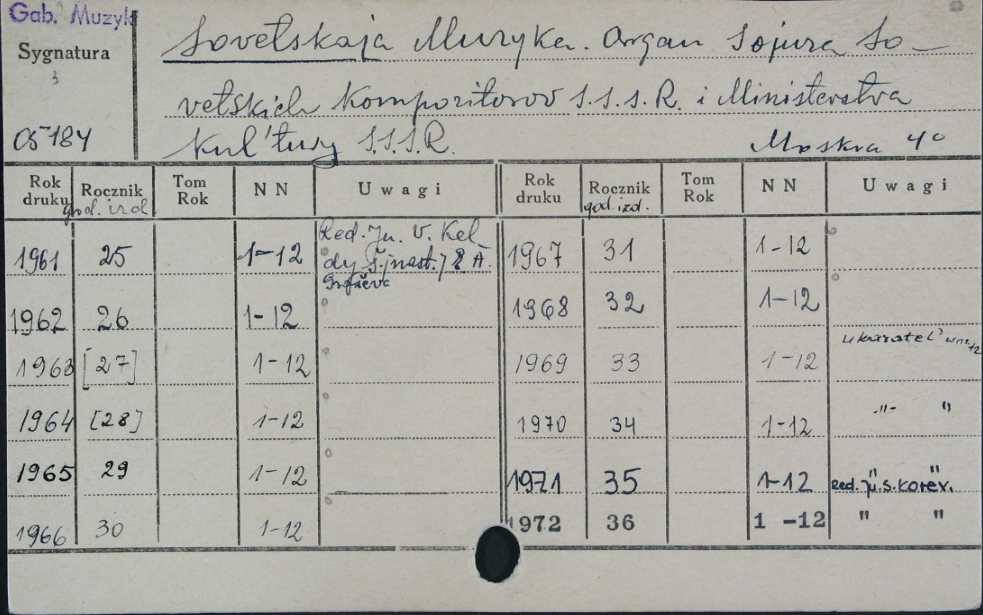 Gab. Muzyk
Sygnatura
05184
Sovetskaja Muzyka. Organ Sojuza So-
vetskich Kompozitorov S.S.S.R. i Ministerstva
Kul'tury S.S.S.R. Moskva 4°
Rok druku Rocznik god. izd. Tom Rok NN Uwagi Rok druku Rocznik god. izd. Tom Rok NN Uwagi
1961 25 1-12 Red. Ju. V. Kel-
dyš, A. 1967 31 1-12
1962 26 1-12 1968 32 1-12
1963 [27] 1-12 1969 33 1-12 ukazatel' w nr 12
1964 [28] 1-12 1970 34 1-12 -"- "
1965 29 1-12 1971 35 1-12 " " Red. Ju. S. Korev.
1966 30 1-12 1972 36 1-12 " "